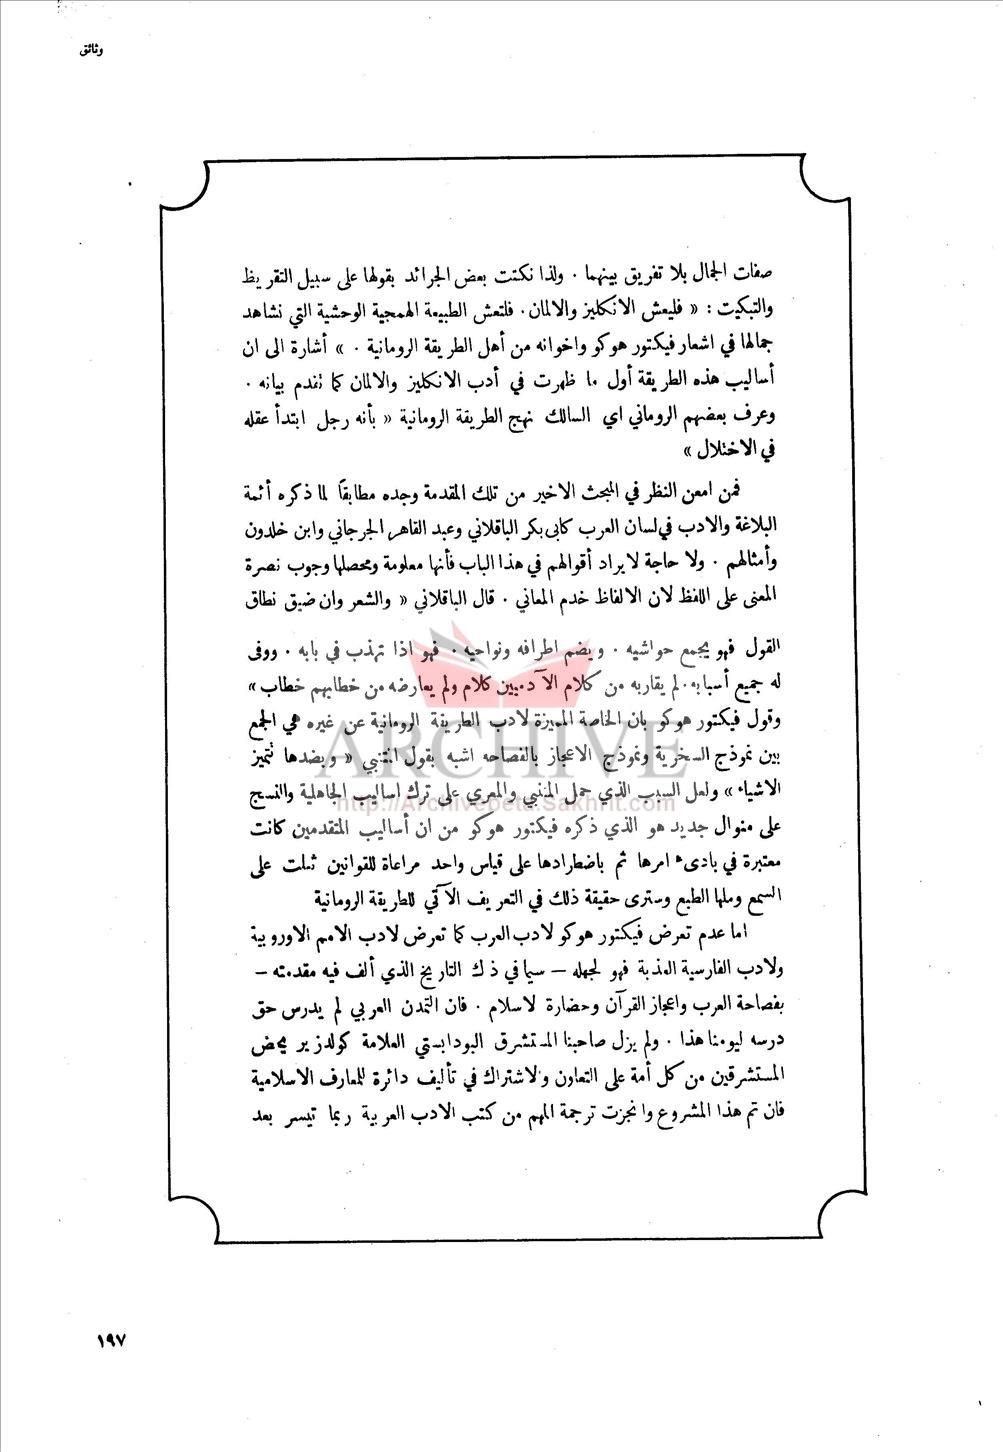 وثائق
صفات الجمال بلا تفريق بينهما . ولذا نكتت بعض الجرائد بقولها على سبيل التقريظ
والتبكيت : « فليعش الانكليز والالمان . فلتعش الطبيعة الهمجية الوحشية التي نشاهد
جمالها في اشعار فيكتور هوكو واخوانه من أهل الطريقة الرومانية . » أشارة الى ان
أساليب هذه الطريقة أول ما ظهرت في أدب الانكليز والالمان كما تقدم بيانه .
وعرف بعضهم الروماني اي السالك نهج الطريقة الرومانية « بأنه رجل ابتدأ عقله
في الاختلال »
فمن امعن النظر في المبحث الاخير من تلك المقدمة وجده مطابقًا لما ذكره أئمة
البلاغة والادب في لسان العرب كابى بكر الباقلاني وعبد القاهر الجرجاني وابن خلدون
وأمثالهم . ولا حاجة لايراد أقوالهم في هذا الباب فأنها معلومة ومحصلها وجوب نصرة
المعنى على اللفظ لان الالفاظ خدم المعاني . قال الباقلاني « والشعر وان ضيق نطاق
القول فهو يجمع حواشيه . ويضم اطرافه ونواحيه . فهو اذا تهذب في بابه . ووفى
له جميع أسبابه . لم يقاربه من كلام الآدميين كلام ولم يعارضه من خطابهم خطاب »
وقول فيكتور هوكو بان الخاصة المميزة لادب الطريقة الرومانية عن غيره هي الجمع
بين نموذج السخرية ونموذج الاعجاز بالفصاحه اشبه بقول المتنبي « وبضدها تتميز
الاشياء » ولعل السبب الذي حمل المتنبي والمعري على ترك اساليب الجاهلية والنسج
على منوال جديد هو الذي ذكره فيكتور هوكو من ان أساليب المتقدمين كانت
معتبرة في بادىء امرها ثم باضطرادها على قياس واحد مراعاة للقوانين ثقلت على
السمع وملها الطبع وسترى حقيقة ذلك في التعريف الآتي للطريقة الرومانية
اما عدم تعرض فيكتور هوكو لادب العرب كما تعرض لادب الامم الاوروبية
ولادب الفارسية الهذبة فهو لجهله – سيما في ذلك التاريخ الذي ألف فيه مقدمته –
بفصاحة العرب واعجاز القرآن وحضارة الاسلام . فان التمدن العربي لم يدرس حق
درسه ليومنا هذا . ولم يزل صاحبنا المستشرق البودابستي العلامة كولدزير يحض
المستشرقين من كل أمة على التعاون والاشتراك في تأليف دائرة للمعارف الاسلامية
فان تم هذا المشروع وانجزت ترجمة المهم من كتب الادب العربية ربما تيسر بعد
ARCHIVE
http://Archivebeta.Sakhrit.com
١٩٧